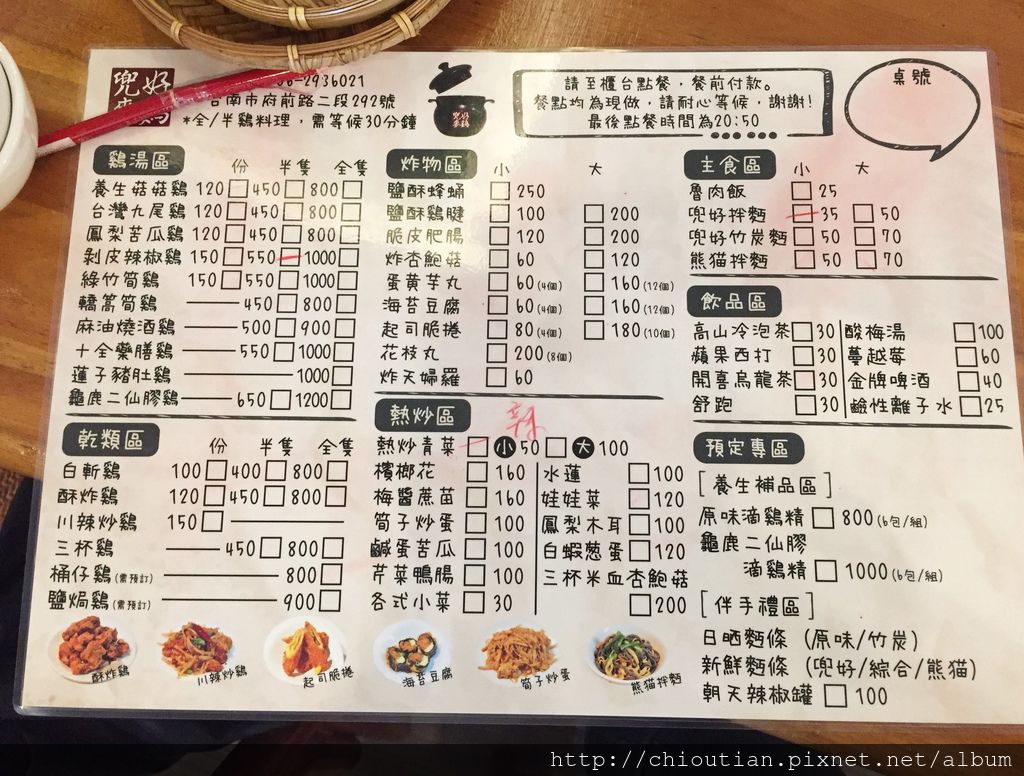 兜好
麥鷄
2936021
台南市府前路二段292號
*全/半鷄料理，需等候30分鐘
兜好
麥鷄
請至櫃台點餐，餐前付款。
餐點均為現做，請耐心等候，謝謝!
最後點餐時間為20:50
桌號
鷄湯區 份 半隻 全隻
養生菇菇鷄 120 450 800
台灣九尾鷄 120 450 800
鳳梨苦瓜鷄 120 450 800
剝皮辣椒鷄 150 550 1000
綠竹筍鷄 150 550 1000
轎篙筍鷄 450 800
麻油燒酒鷄 500 900
十全藥膳鷄 550 1000
蓮子豬肚鷄 1000
龜鹿二仙膠鷄 650 1200
乾類區 份 半隻 全隻
白斬鷄 100 400 800
酥炸鷄 120 450 800
川辣炒鷄 150
三杯鷄 450 800
桶仔鷄(需預訂) 800
鹽焗鷄(需預訂) 900
炸物區 小 大
鹽酥蜂蛹 250
鹽酥鷄腱 100 200
脆皮肥腸 120 200
炸杏鮑菇 60 120
蛋黃芋丸 60(4個) 160(12個)
海苔豆腐 60(4個) 160(12個)
起司脆捲 80(4個) 180(10個)
花枝丸 200(8個)
炸天婦羅 60
熱炒區 辣
熱炒青菜 小50 大100
檳榔花 160
梅醬蔗苗 160
筍子炒蛋 100
鹹蛋苦瓜 100
芹菜鴨腸 100
各式小菜 30
水蓮 100
娃娃菜 120
鳳梨木耳 100
白蝦蔥蛋 120
三杯米血杏鮑菇
200
主食區 小 大
魯肉飯 25
兜好拌麵 35 50
兜好竹炭麵 50 70
熊貓拌麵 50 70
飲品區
高山冷泡茶 30
蘋果西打 30
開喜烏龍茶 30
舒跑 30
酸梅湯 100
蔓越莓 60
金牌啤酒 40
鹼性離子水 25
預定專區
[養生補品區]
原味滴鷄精 800(6包/組)
龜鹿二仙膠
滴鷄精 1000(6包/組)
[伴手禮區]
日晒麵條 (原味/竹炭)
新鮮麵條 (兜好/綜合/熊貓)
朝天辣椒罐 100
酥炸鷄
川辣炒鷄
起司脆捲
海苔豆腐
筍子炒蛋
熊貓拌麵
http://chioutian.pixnet.net/album